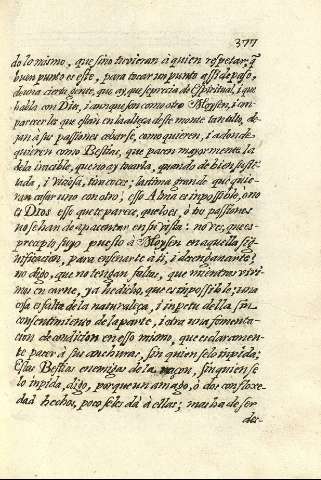 377
do lo mismo, que sino tuvieran à quien respetar. q̃
buen punto es este, para tocar un punto assi de paso,
à una cierta gente, que ay que se precia de Espiritual, i que
habla con Dios, i aunque son como otro Moysen, i en
parecerles que estàn en la alteça de este monte tan alto, de-
jan à sus passiones cebarse, como quieren, i adonde
quieren como Bestias, que pacen mayormente la
de la irascible, que no ay tocarla, quando de bien susti-
tada, i viciosa, tira coces; lastima grande que quie-
ran casar uno con otro; esso Alma es impossible, ò no
es Dios esso que te parece, que lo es, ò tus passiones
no se han de apacentar en su vista: no ves, que es-
precepto suyo puesto à Moysen en aquella sig-
nificacion, para enseñarte à ti, i desengañarte?
no digo, que no tengan faltas, que mientras vivi-
mos en carne, ya hè dicho, que es impossible; una
cosa es falta de la naturaleça, i impetu de ella sin
consentimiento de la parte, i otra una fomenta-
cion de condicion en esso mismo, que es claramen-
te pacer à sus anchuras, sin quien se lo impida;
Estas Bestias enemigas de la raçon, sin quien se
lo inpida, digo, porque un amago, ò dos con floxe-
dad hechos, poco se les dà à ellas; mas ha de ser
des-